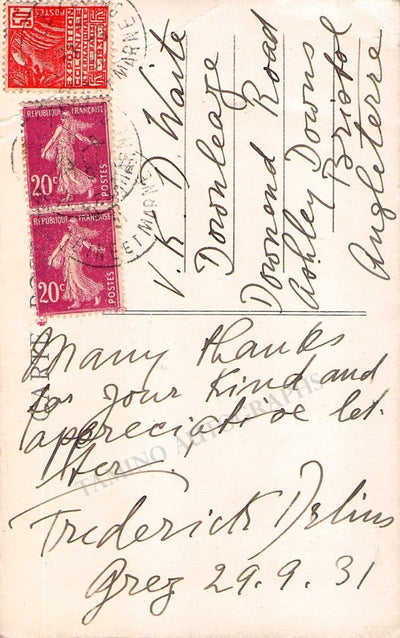 50c
POSTES
EXPOSITION
COLONIALE
INTERNATIONALE
PARIS 1931
MARNE
REPUBLIQUE FRANÇAISE
20c
POSTES
REPUBLIQUE FRANÇAISE
20c
POSTES
ET MARNE
V. K. D. Waite
Downleaze
Downend Road
Ashley Downs
Bristol
Angleterre
CARTE
Many thanks
for your kind and
appreciative let-
ter.
TAMINO AUTOGRAPHS
Frederick Delius
Grez 29.9.31